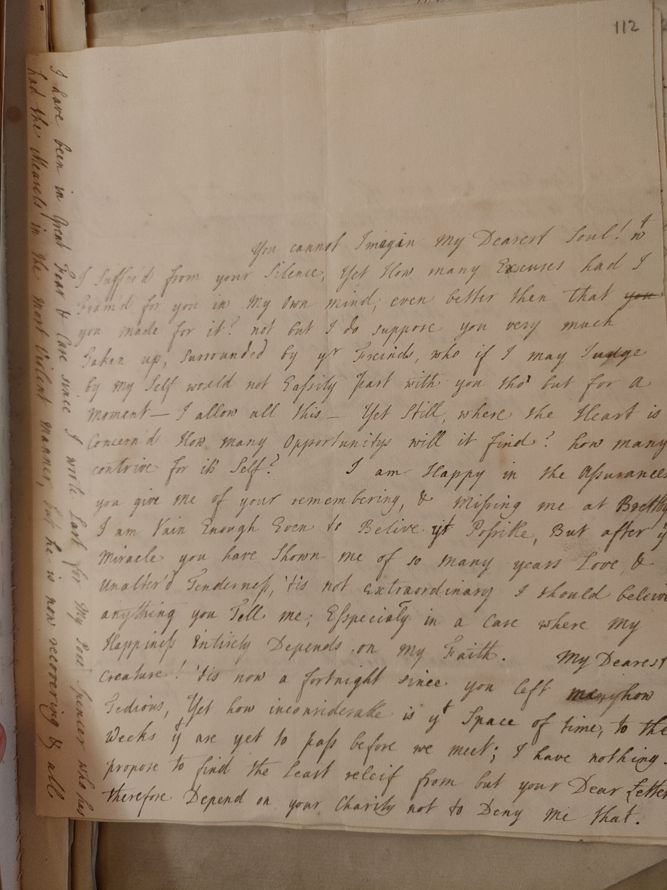 112
You cannot Imagin My Dearest Soul! wt
I Suffer'd from your Silence, Yet How many Excuses had I
fram'd for you in My own mind, even better then that you
you made for it? not but I do suppose you very much
Taken up, surrounded by yr Freinds, who if I may Judge
by my Self would not Eassily part with you tho' but for a
Moment — I allow all this — Yet Still, where the Heart is
Concern'd How many Opportunitys will it find? how many
contrive for it's Self? I am Happy in the Assurances
you give me of your remembering, & Missing me at
I am Vain Enough Even to Belive yt Possible, But after ye
Miracle you have Shown me of so many years Love, &
Unalter'd Tenderness, 'tis not extraordinary I should believe
anything you Tell me; Especialy in a Case where My
Happiness Entirely Depends on My Faith. My Dearest
Creature! 'tis now a fortnight since you left how
Tedious, Yet how inconsiderable is yt Space of time, to the
Weeks yt are yet to pass before we meet; I have nothing I
propose to find the Least releif from but your Dear Letters
therefore Depend on your Charity not to Deny Me that.
I have been in great Fear & Care since I wrote Last for My Poor Spencer who has
had the Measels in the most Violent manner, but he is now recovering & all